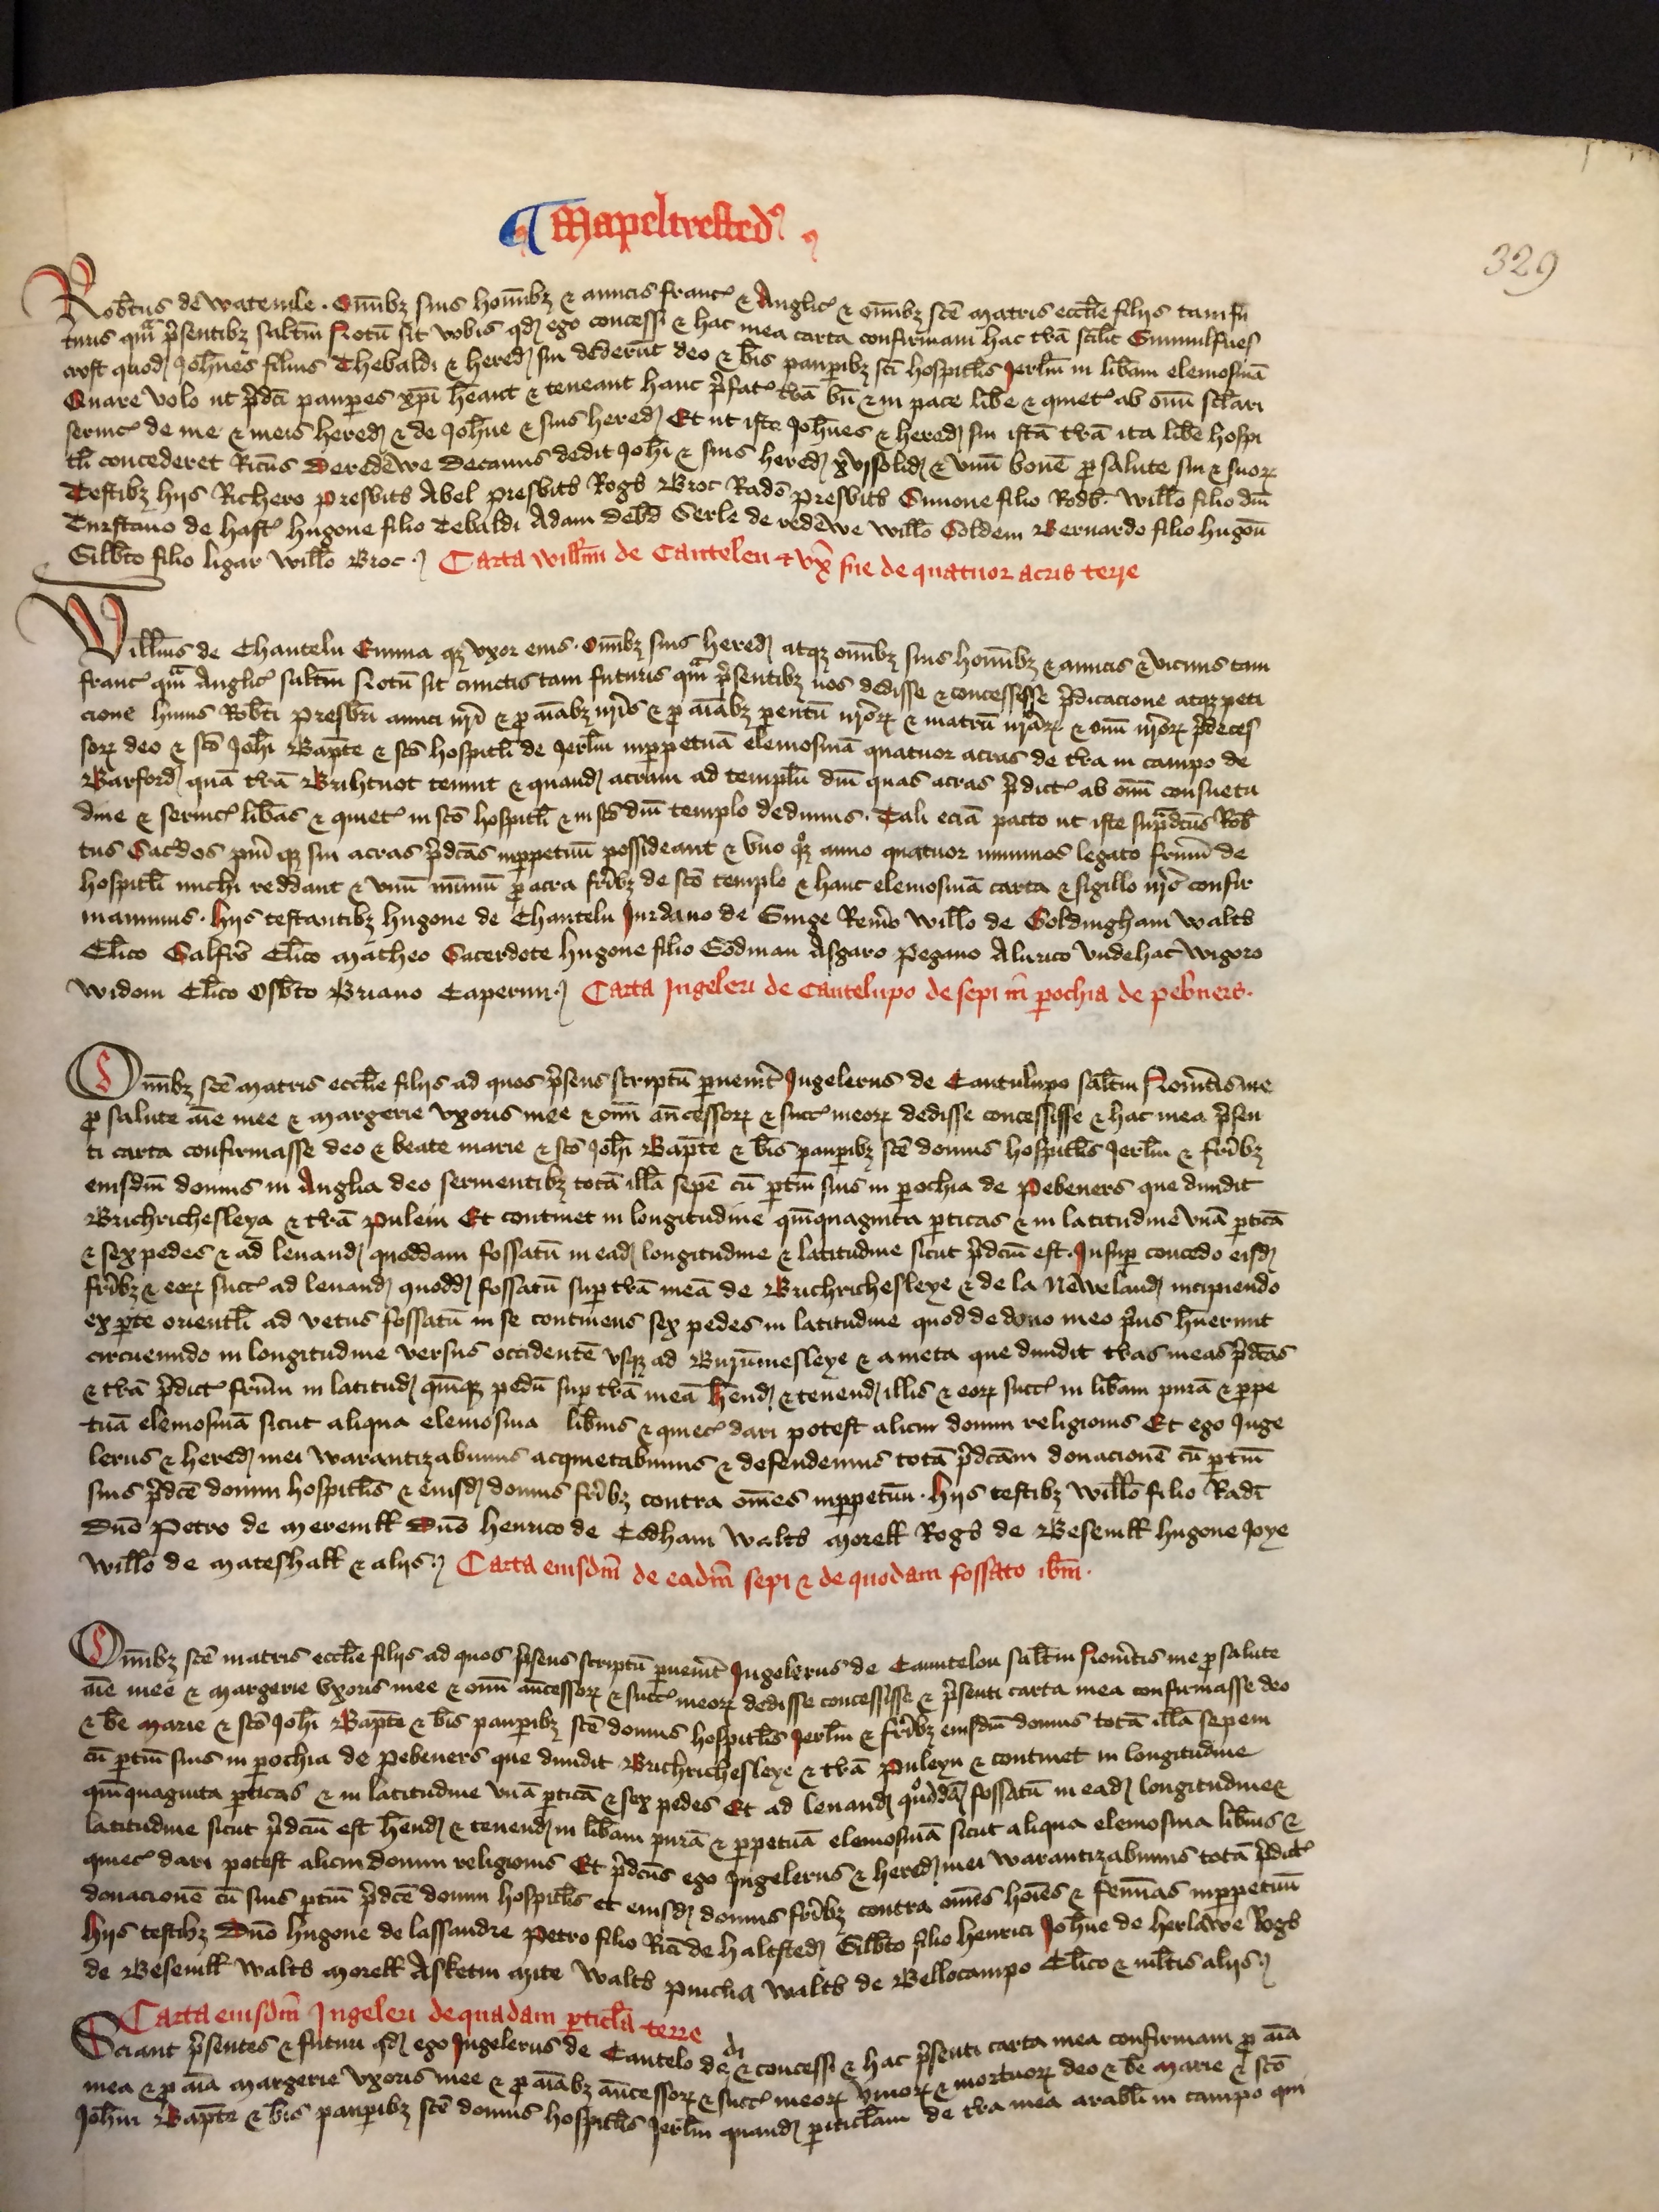 ¶ Mapeltrested'
329
Rob̄tus de Watevile . Om̄ibꝫ suis hom̄ibꝫ ⁊ amicis franc' ⁊ Anglic' ⁊ om̄ibꝫ sc̄e matris eccl̄ie filijs tam fu
turis qua̅ p̄sentibꝫ salt̄m Notū sit vobis qd̛ ego concessi ⁊ hac mea carta confirmavi hac t̄rā scil̄t
croft quod̛ Joh̄nes filius Thebaldi ⁊ hered̛ sui dederūt deo ⁊ b̄is paup̄ibꝫ sc̄i hospitl̄is Jerl̄m in lib̄am elemosinā
Quare volo ut p̄dc̄i paup̄es xp̄i h̄eant ⁊ teneant hanc p̄fat' t̄rā bn̄ ⁊ in pace lib̄e ⁊ quiet' ab om̄i sc̄lari
servic' de me ⁊ meis hered̛ ⁊ de Joh̄ne ⁊ suis hered̛ Et ut iste Joh̄nes ⁊ hered̛ sui istā t̄rā ita lib̄e hospi
tl̄i concederet Ric̄us Deredēwe Decanus dedit Joh̄i ⁊ suis hered̛ xvj solid̛ ⁊ vnū bovē ꝓ salute sui ⁊ suoꝝ
Testibꝫ hijs Richero presbit̄o Abel presbit̄o Roḡo Broc Rad̄o presbit̄o Simone filio Rodb̄ . Will̄o filio dn̄i
Turstano de hast' hugone filio Tebaldi Adam Serle de redēwe Will̄o Goldem Bernardo filio hugon̄
Gilb̄to filio ligar Will̄o Broc . Carta Will̄mi de Cantelen ⁊ vx̄ sue de quatuor acris terre
Will̄ms de Chantelu Emma qꝫ vxor eius . Om̄ibꝫ suis hered̛ atqꝫ om̄ibꝫ suis hom̄ibꝫ ⁊ amicis ⁊ vicinis tam
franc' qua̅ Anglic' salt̄m Notū sit cunctis tam futuris qua̅ p̄sentibꝫ nos dedisse ⁊ concessisse p̄dicacione atqꝫ peti
cione huius Rob̄ti presbr̄i amici nr̄i ⁊ ꝓ aīabꝫ nr̄is ⁊ ꝓ aīabꝫ pentū nr̄oꝝ ⁊ matrū nr̄aꝝ ⁊ om̄i nr̄oꝝ p̄deces
soꝝ deo ⁊ sc̄o Joh̄i Bapt̄e ⁊ sc̄o hospitl̄i de Jerl̄m inꝑpetuā elemosinā quatuor acras de t̄ra in campo de
Barford̛ quā t̄rā Brihtnot tenuit ⁊ quand̛ acram ad templū dn̄i quas acras p̄dict' ab om̄i consuetu
dine ⁊ servic' lib̄as ⁊ quiet' in sc̄o hospitl̄i ⁊ in sc̄o dn̄i templo dedimus . Tali eciā pacto ut iste sup̄dc̄us Rob̄
tus Sac̄dos pīn qꝫ sui acras p̄dc̄as inꝑpetuū possideant ⁊ vno qᵒqꝫ anno quatuor nummos legato fr̄um de
hospitl̄i michi reddant ⁊ vnū nūmū ꝓ acra fr̄ibꝫ de sc̄o templo ⁊ hanc elemosinā carta ⁊ sigillo nr̄o confir
mavimus . Hijs testantibꝫ hugone de Chantelu Jurdano de Ginge Rem̄o Will̄o de Goldingham Walt̄o
Cl̄ico Galfr̄o Cl̄ico Matheo Sacerdote hugone filio Godman Asgaro Pegano Alurico vndehac̄ Wigoro
Widom Cl̄ico Osb̄to Briano Caperun . Carta Ingeleri de Cantelupo de sepi in̄ ꝑochia de pebners .
Om̄ibꝫ sc̄e Matris eccl̄ie filijs ad quos p̄sens scriptū ꝑvenerit Ingelerus de Cantulupo salt̄m Nov̄itis me
ꝓ salute aīe mee ⁊ Margerie vxoris mee ⁊ om̄i an̄cessoꝝ ⁊ succ' meoꝝ dedisse concessisse ⁊ hac mea p̄sen
ti carta confirmasse deo ⁊ beate marie ⁊ sc̄o Joh̄i Bapt̄e ⁊ b̄is paup̄ibꝫ sc̄e domus hospitl̄is Jerl̄m ⁊ fr̄ibꝫ
eiusdm̄ domus in Anglia deo servientibꝫ totā illā sepē cū ꝑtin̄ suis in ꝑochia de Pebeners que dividit
Brichrichesleya ⁊ t̄rā Pulein Et continet in longitudine quīnquaginta ꝑticas ⁊ in latitudine vnā ꝑticā
⁊ sex pedes ⁊ ad levand̛ quoddam fossatū in ead̛ longitudine ⁊ latitudine sicut p̄dc̄m est . Insuꝑ concedo eisd̛
fr̄ibꝫ ⁊ eoꝝ succ' ad levand̛ quodd̛ fossatū suꝑ t̄rā meā de Brichrichesleye ⁊ de la Nēweland̛ incipiendo
ex ꝑte orientl̄i ad vetus fossatū in se continens sex pedes in latitudine quod de dono meo p̄us h̄uerunt
circueundo in longitudine versus occidentē vsqꝫ ad Buryūnesleye ⁊ a meta que dividit t̄ras meas p̄dc̄as
⁊ t̄rā p̄dict' fr̄um in latitud̛ quīnqꝫ pedū suꝑ t̄rā meā h̄end̛ ⁊ tenend̛ illis ⁊ eoꝝ succ' in lib̄am purā ⁊ ꝑpe
tuā elemosinā sicut aliqua elemosina lib̄ius ⁊ quiec' dari potest alicui domui religionis Et ego Inge
lerus ⁊ hered̛ mei warantizabimus acquietabimus ⁊ defendemus totā p̄dc̄am donacionē cū ꝑtin̄
suis p̄dc̄e domui hospitl̄is ⁊ eiusd̛ domus fr̄ibꝫ contra om̄es inꝑpetuū . Hijs testibꝫ Will̄o filio Rad̄i
Dn̄o Petro de Merenill̄ Dn̄o Henrico de Codham Walt̄o Morell̄ Roḡo de Besevill̄ hugone Joye
Will̄o de Mateshall̄ ⁊ alijs . Carta eiusdm̄ de eadm̄ sepi ⁊ de quodam fossato ib̄m .
Om̄ibꝫ sc̄e matris eccl̄ie filijs ad quos p̄sens scriptū ꝑvenerit Ingelerus de Cauntelou salt̄m Nov̄itis me ꝓ salute
aīe mee ⁊ Margerie vxoris mee ⁊ om̄i an̄cessoꝝ ⁊ succ' meoꝝ dedisse concessisse ⁊ p̄senti carta mea confirmasse deo
⁊ b̄e Marie ⁊ sc̄o Joh̄i Bapt̄e ⁊ b̄is paup̄ibꝫ sc̄e domus hospitl̄is Jerl̄m ⁊ fr̄ibꝫ eiusdm̄ domus totā illā sepem
cū ꝑtin̄ suis in ꝑochia de Pebeners que dividit Brichrichesleye ⁊ t̄rā Puleyn ⁊ continet in longitudine
quīnquaginta ꝑticas ⁊ in latitudine vnā ꝑticā ⁊ sex pedes Et ad levand̛ quoddā fossatū in ead̛ longitudine ⁊
latitudine sicut p̄dc̄m est h̄end̛ ⁊ tenend̛ in lib̄am purā ⁊ ꝑpetuā elemosinā sicut aliqua elemosina lib̄ius ⁊
quiec' dari potest alicui domui religionis Et p̄dc̄us ego Ingelerus ⁊ hered̛ mei warantizabimus totā p̄dict'
donacionē cū suis ꝑtin̄ p̄dc̄e domui hospitl̄is et eiusd̛ domus fr̄ibꝫ contra om̄es hoīes ⁊ fem̄as inꝑpetuū
Hijs testibꝫ Dn̄o hugone de lassandre Petro filio Ric̄i de halsted̛ Gilb̄to filio Henrici Joh̄ne de herlawe Roḡo
de Besevill̄ Walt̄o Morell̄ Asketin Mite Walt̄o Walt̄o de Bellocampo Cl̄ico ⁊ ml̄tis alijs .
Carta eiusdm̄ Ingeleri de quadam ꝑticl̄a terre
Sciant p̄sentes ⁊ futuri qd̛ ego Ingelerus de Cantelo dedi ⁊ concessi ⁊ hac p̄senti carta mea confirmavi ꝓ aīa
mea ⁊ ꝓ aīa Margerie vxoris mee ⁊ ꝓ aīabꝫ an̄cessoꝝ ⁊ succ' meoꝝ vivoꝝ ⁊ mortuoꝝ deo ⁊ b̄e Marie ⁊ sc̄o
Joh̄ni Bapt̄e ⁊ b̄is paup̄ibꝫ sc̄e domus hospitl̄is Jerl̄m quand̛ ꝑticl̄am de t̄ra mea arabl̄i in campo qui